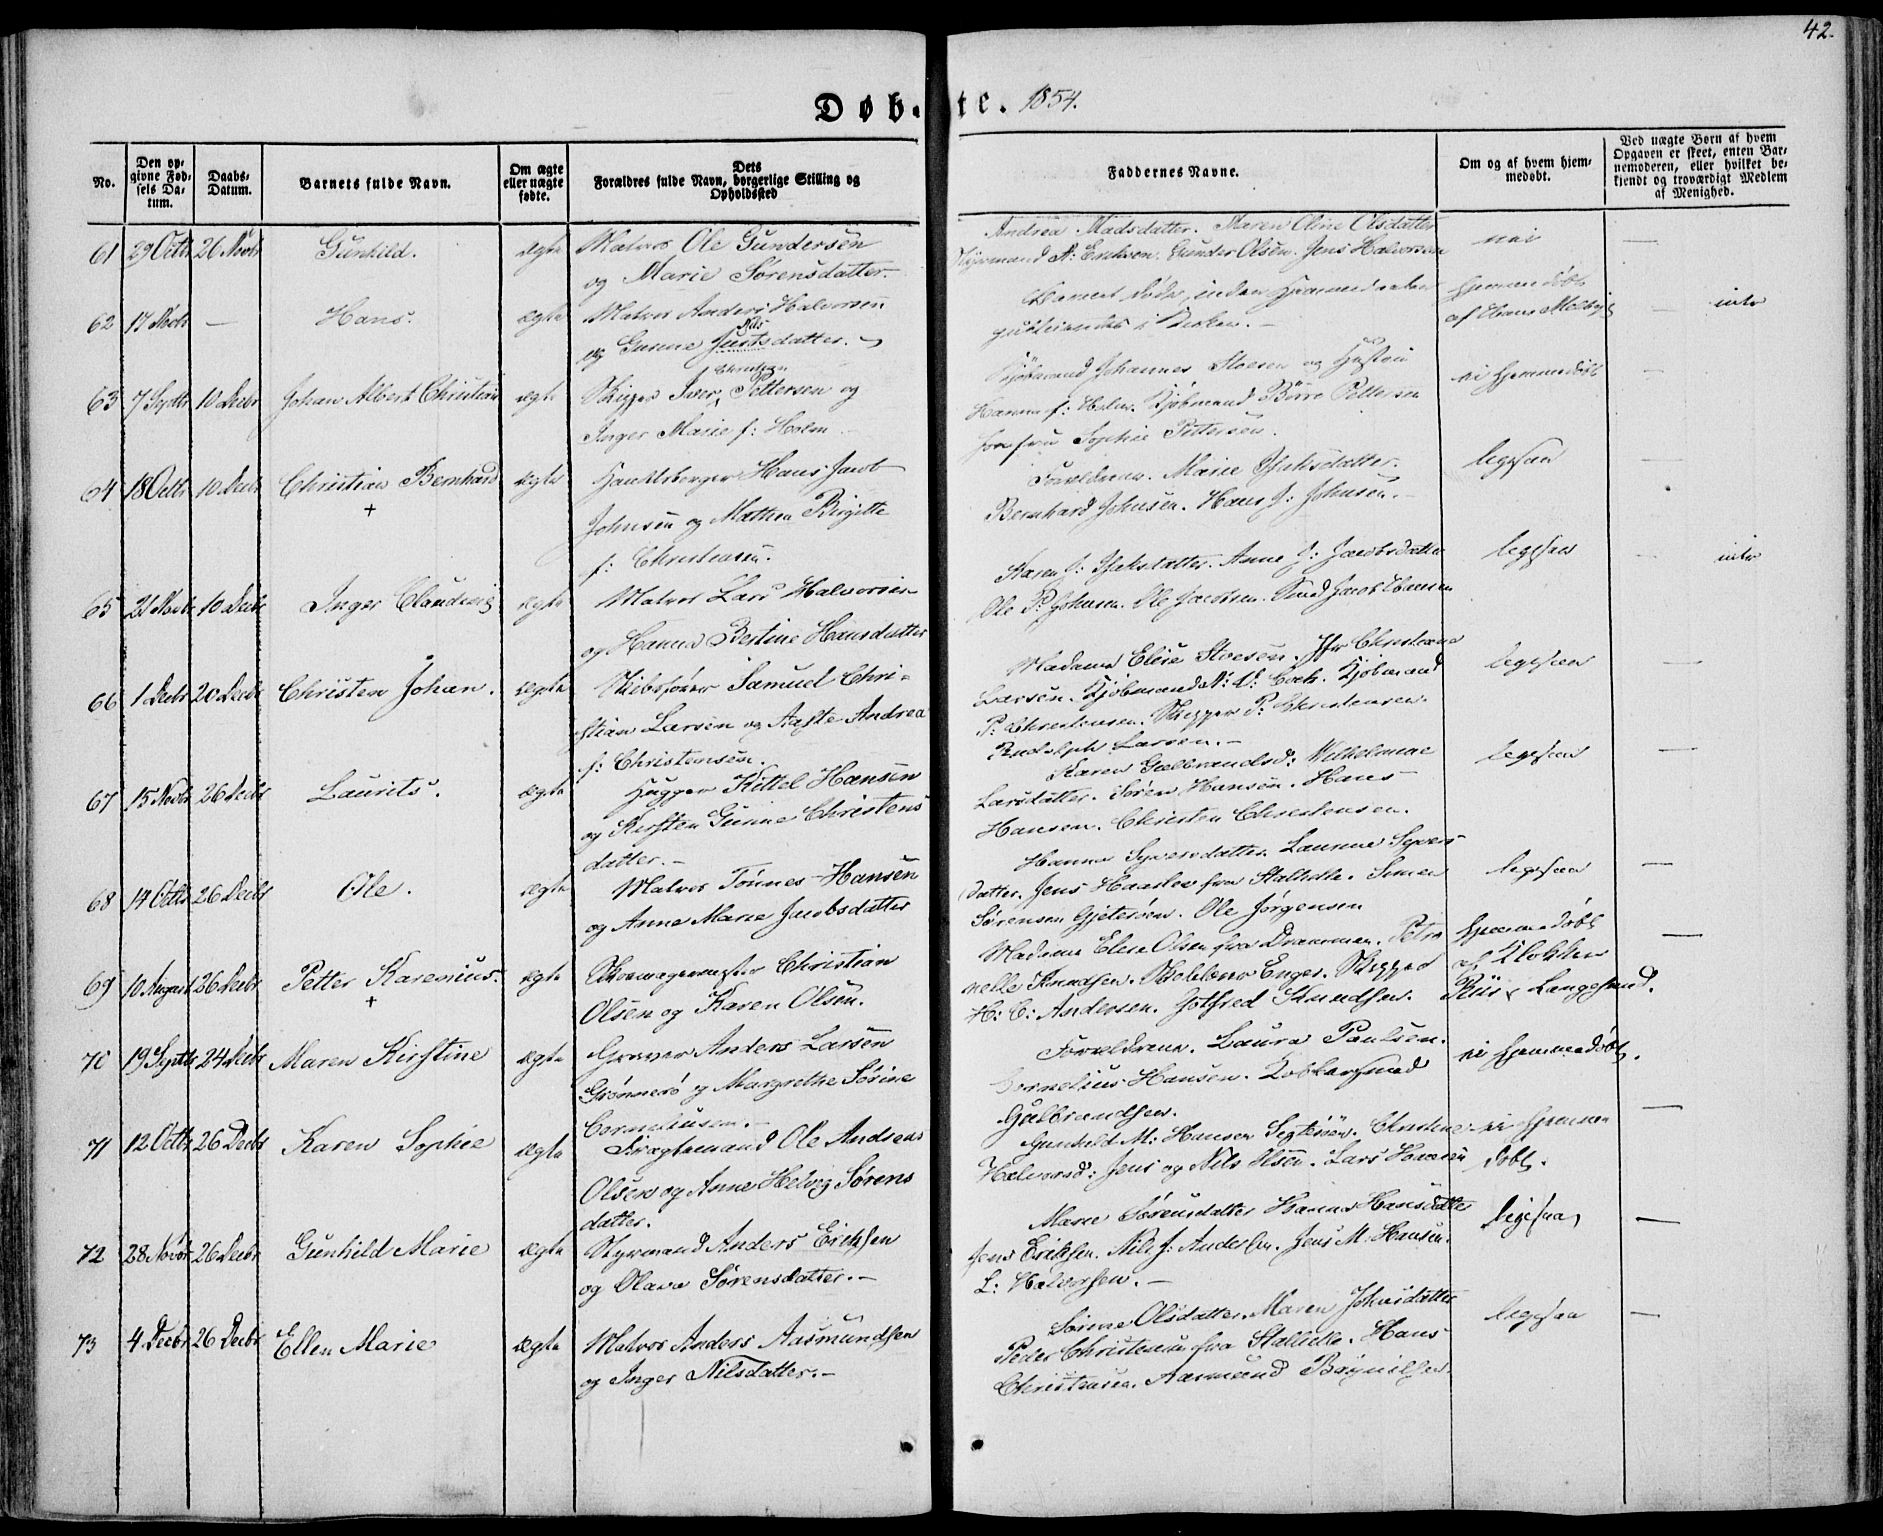 42.
Døbte. 1854.
No.
Den opgivne Fødsels Datum.
Daabs-Datum.
Barnets fulde Navn.
Om ægte eller uægte fødte.
Dets Forældres fulde Navn, borgerlige Stilling og Opholdssted
Faddernes Navne.
Om og af hvem hjemmedøbt.
Ved uægte Børn af hvem Opgaven er skeet, enten Barnemoderen, eller hvilket bekjendt og troværdigt Medlem af Menighed.
61 29 Octbr 26 Novbr Gunhild. ægte Matros Ole Gundersen
og Marie Sørensdatter.
Andrea Madsdatter. Maren Oline Olsdatter
Styrmand A: Eriksen. Gunder Olsen. Jens Halvorsen
nei
62 17 Novbr — Hans. ægte Matros Anders Halvorsen
Nils
og Gunne Justsdatter.
Barnet døde inden
i Kirken.
hjemmedøbt
af Hans
intr
63 7 Septbr 10 Decbr Johan Albert Christian ægte Skipper Iver Christian Pettersen og
Inger Marie f: Holm
Kjøbmand Johannes Stoesen og Hustru
Hanna f: Holm. Kjøbmand Børre Pettersen
Jomfru Sophie Pettersen.
ei hjemmedøbt
64 18 Octbr 10 Decbr Christian Bernhard ægte Handelsborger Hans Jacob
+
Johnsen og Mathea Birgitte
f: Christensen.
Forældrene. Marie Isaksdatter.
Bernhard Johnsen. Hans J: Johnsen.
ligesaa
65 21 Novbr 10 Decbr Inger Claudine ægte Matros Lars Halvorsen
og Hanna Bertine Hansdatter
Karen J: Isaksdatter. Anne J: Jacobsdatter
Ole P: Johnsen. Ole Jacobsen. Knud Jacob Hansen
ligesaa
intr
66 1 Decbr 20 Decbr Christen Johan. ægte Skibsfører Samuel Chri-
stian Larsen og Aaste Andrea
f: Christensen.
Madame Elise Stoesen. Jfr Christiane
Larsen. Kjøbmand N: V: Coch. Kjøbmand
P: Christensen. Skipper P: Christensen.
Rudolph Larsen.
ligesaa
67 15 Novbr 26 Decbr Laurits. ægte Hugger Kittel Hansen
og Kirsten Gurine Christens
datter.
Karen Gulbrandsd: Wilhelmine
Larsdatter. Søren Hansen. Hans
Hansen. Christen Christensen.
ligesaa
68 14 Octbr 26 Decbr Ole. ægte Matros Tønnes Hansen
og Anne Marie Jacobsdatter
Hanna Syversdatter. Laurine Syvers
datter. Jens Haaslev fra Stathelle. Simen
Sørensen Gjeterøen. Ole Jørgensen
ligesaa
69 10 August 26 Decbr Petter Karenius. ægte Skomagermester Christian
+
Olsen og Karen Olsen.
Madame Elen Olsen fra Drammen. Petro
nelle Knudsen. Skolelærer Enger. Skipper
H: C: Andersen. Gotfred Knudsen.
hjemmedøbt
af Klokker
Riis i Langesund.
70 19 Septbr 24 Decbr Maren Kirstine ægte Graver Anders Larsen
Grønnerø og Margrethe Sørine
Corneliusen.
Forældrene. Laura Paulsen.
Cornelius Hansen. Kobbersmed
Gulbrandsen.
ei hjemmedøbt.
71 12 Octbr 26 Decbr Karen Sophie ægte Fragtemand Ole Andreas
Olsen og Anne Helvig Sørens
datter.
Gunhild M: Hansen Sigterøen. Christine
Halvorsd: Jens og Nils Olsen. Lars Hansen
ei hjemme
døbt.
72 28 Novbr 26 Decbr Gunhild Marie ægte Styrmand Anders Eriksen
og Olava Sørensdatter.
Maren Sørensdatter. Hanna Hansdatter
Jens Eriksen. Nils J: Andersen. Jens M: Hansen.
L: Halvorsen.
ligesaa
73 4 Decbr 26 Decbr Ellen Marie ægte Matros Anders Aasmundsen
og Inger Nilsdatter.
Sørine Olsdatter. Maren Johnsdatter
Peder Christensen fra Stathelle. Hans
Christensen. Aasmund Brynilsen.
ligesaa